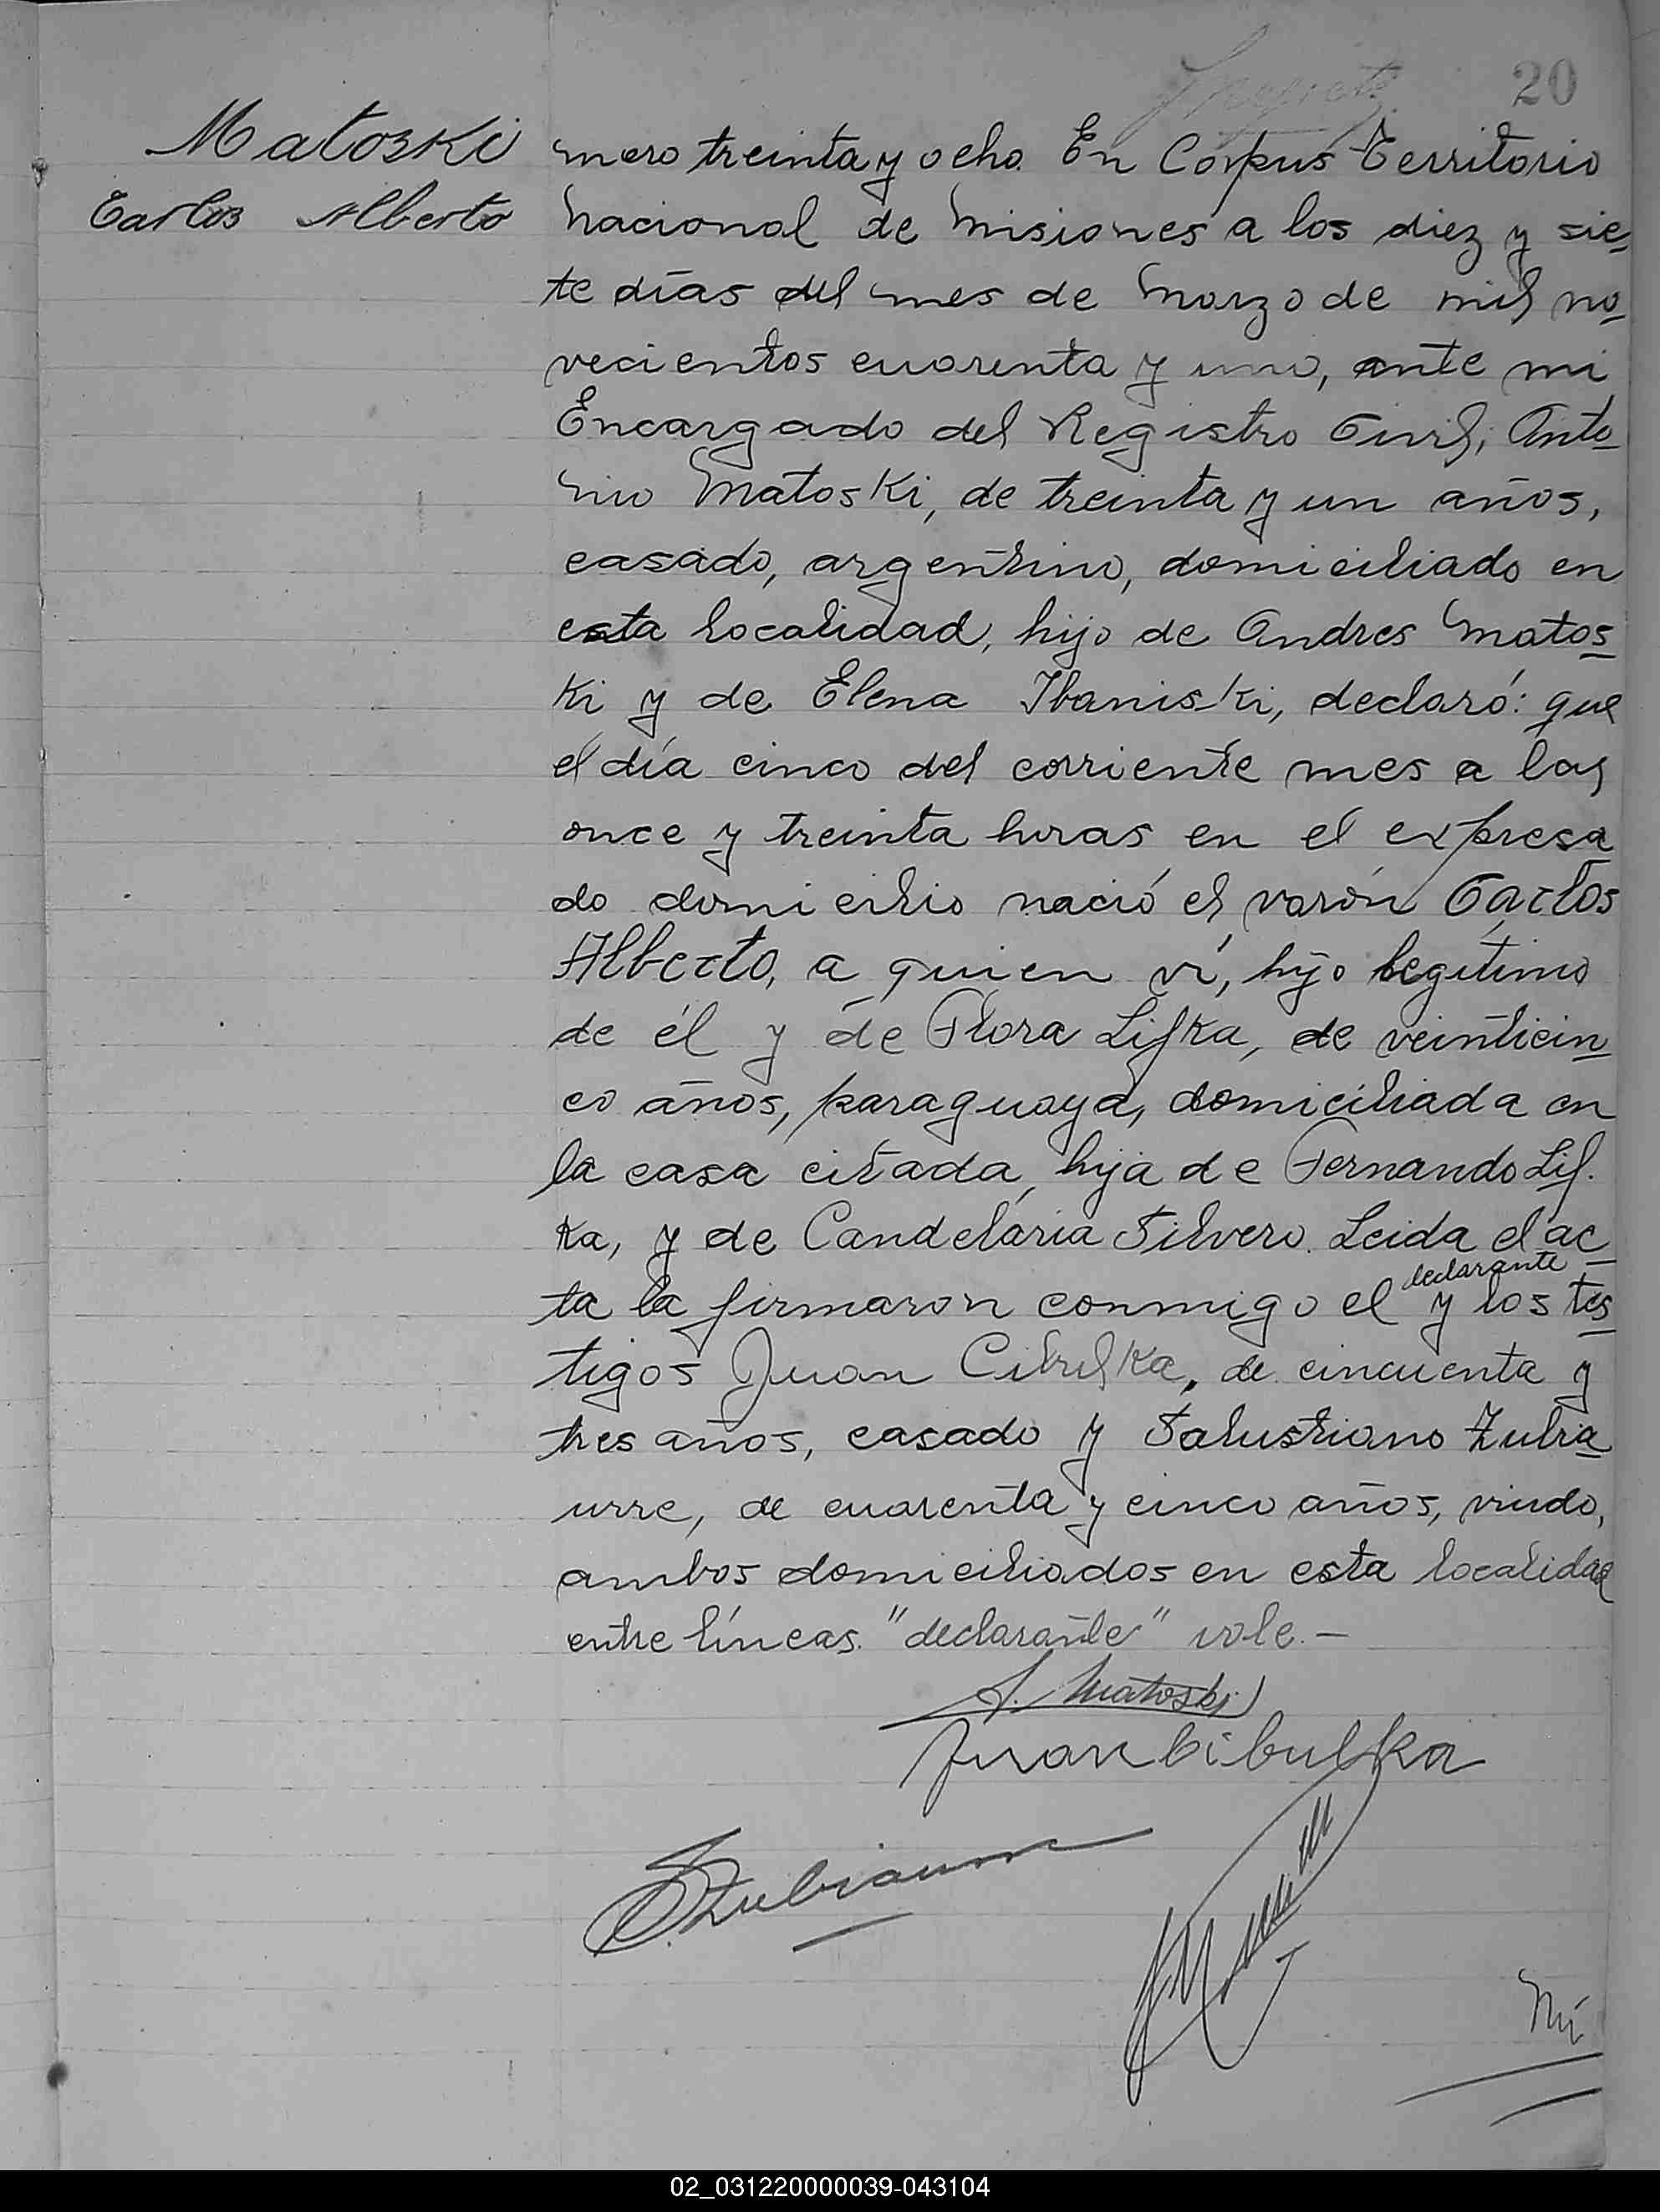 20
Matoski
Carlos Alberto
mero treinta y ocho. En Corpus Territorio
Nacional de Misiones a los diez y sie-
te días del mes de Marzo de mil no-
vecientos cuarenta y uno, ante mi
Encargado del Registro Civil; Anto-
nio Matoski, de treinta y un años,
casado, argentino, domiciliado en
esta localidad, hijo de Andres Matos-
ki y de Elena Ibaniski, declaró: que
el día cinco del corriente mes a las
once y treinta horas en el expresa
do domicilio nació el varón Carlos
Alberto, a quien ví, hijo legítimo
de él y de Flora Lifka, de veinticin-
co años, paraguaya, domiciliada en
la casa citada, hija de Fernando Lif.
ka, y de Candelaria Silvero. Leida el ac-
declarante
ta la firmaron conmigo el y los tes-
tigos Juan Cibulka, de cincuenta y
tres años, casado y Salustiano Zubia-
urre, de cuarenta y cinco años, viudo,
ambos domiciliados en esta localidad
entre líneas. "declarante" vale.—
A. Matoski
Juan Cibulka
S. Zubiaurre
Nú
02_031220000039-043104